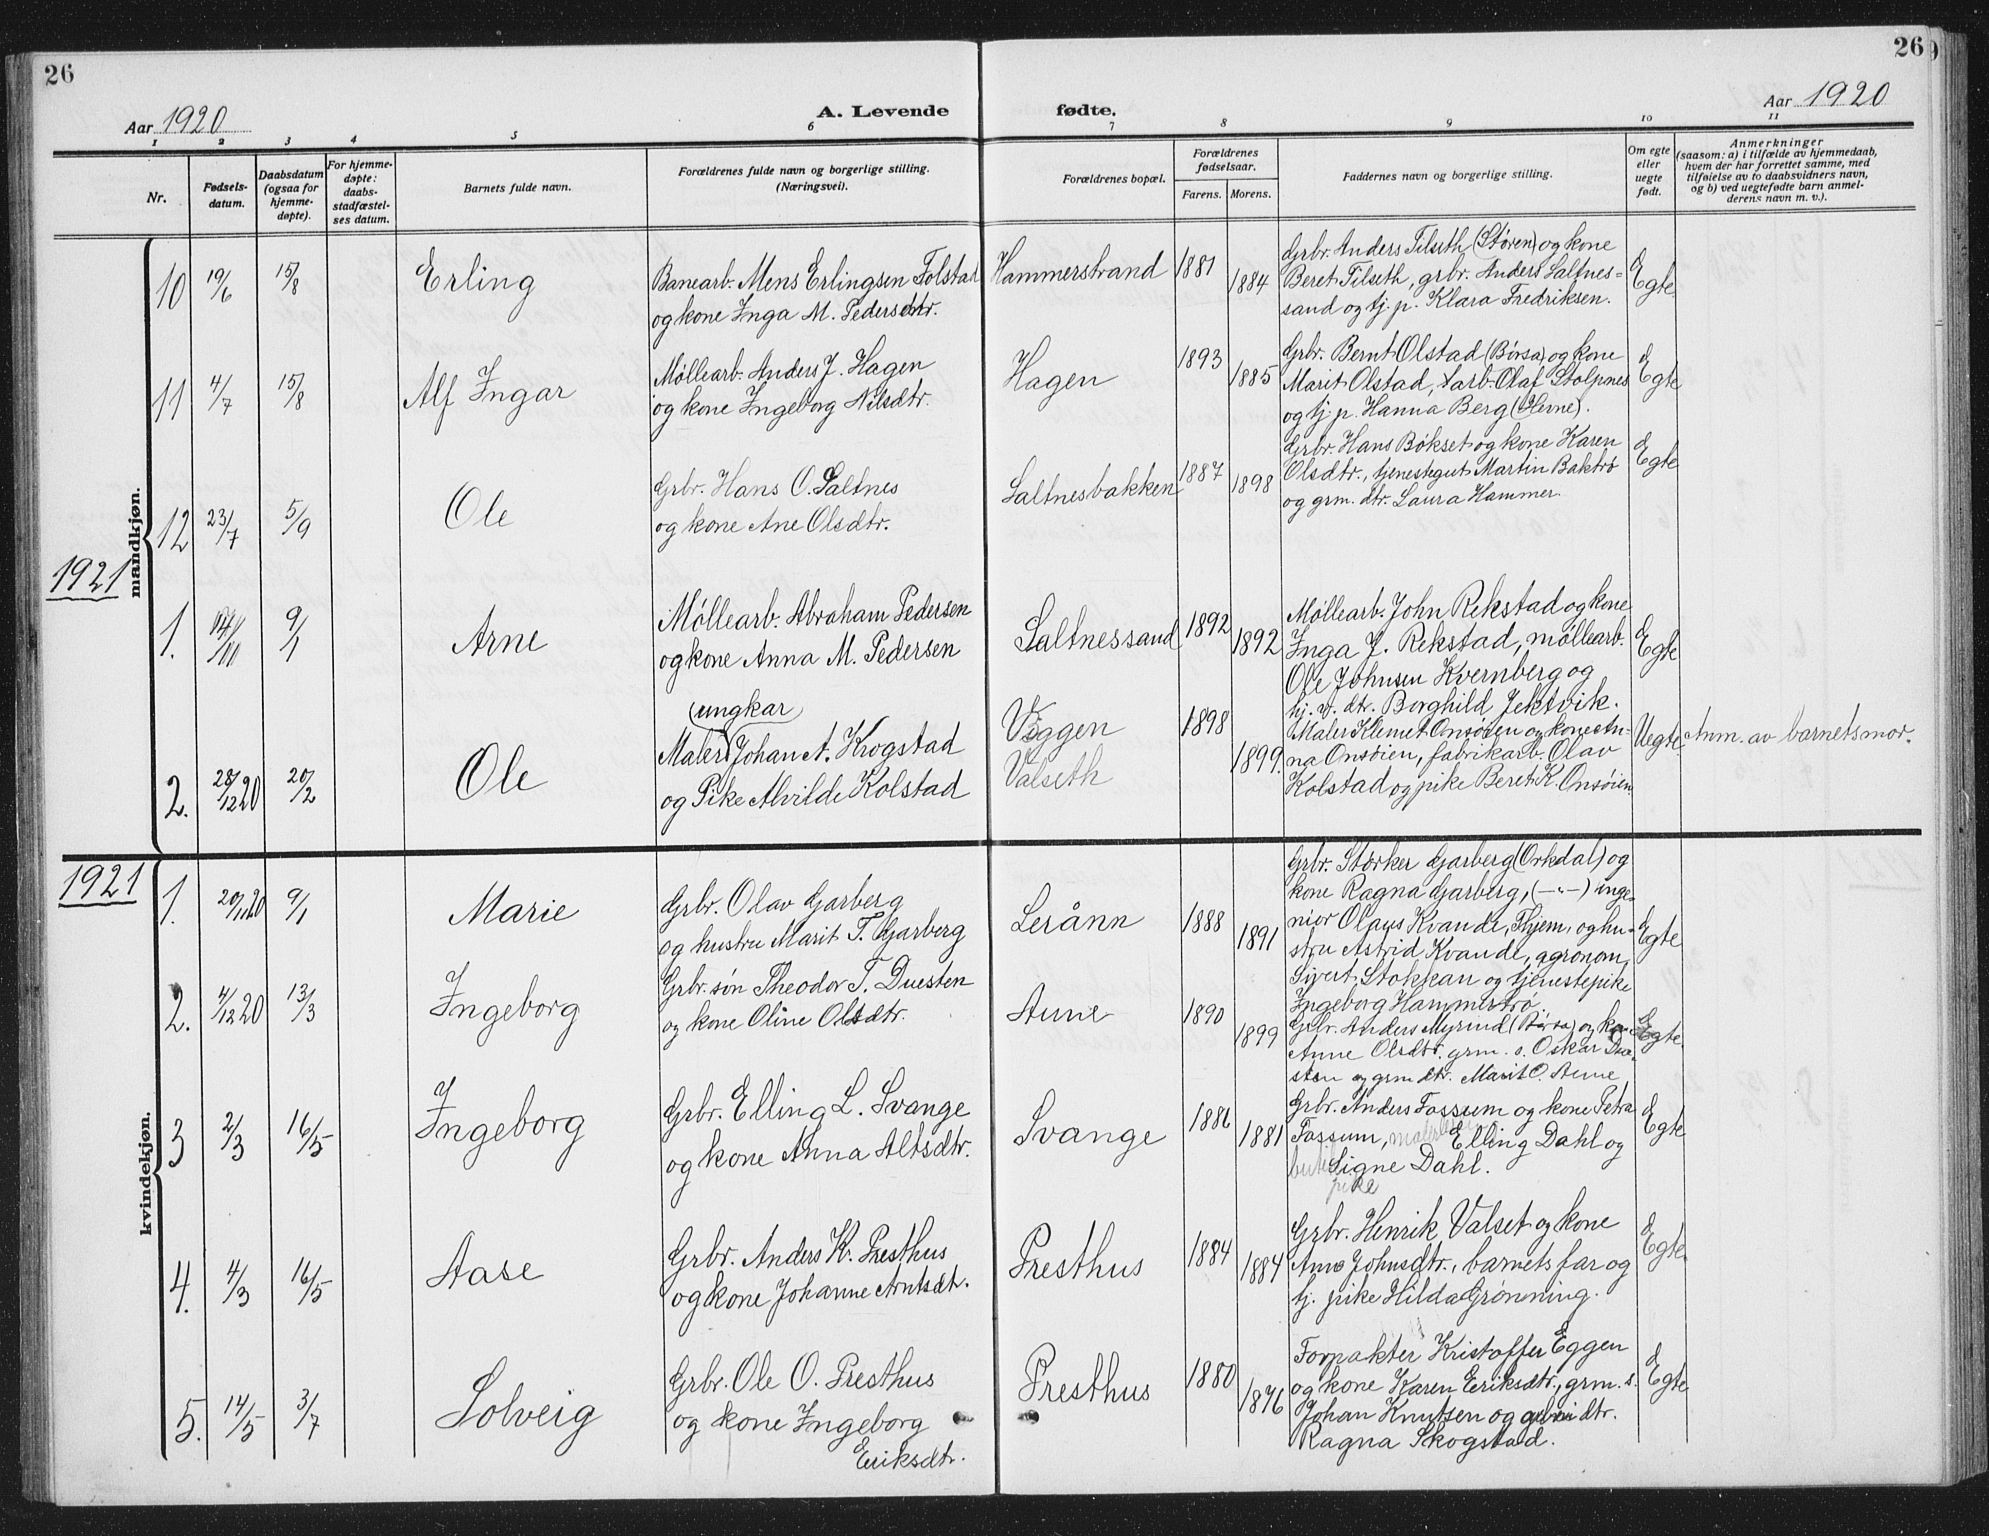 26
26
Aar 1920
A. Levende fødte.
Aar 1920
1 2 3 4 5 6 7 8 9 10 11
Nr.
Fødsels-
datum.
Daabsdatum
(ogsaa for
hjemme-
døpte).
For hjemme-
døpte:
daabs-
stadfæstel-
ses datum.
Barnets fulde navn.
Forældrenes fulde navn og borgerlige stilling.
(Næringsvei).
Forældrenes bopæl.
Forældrenes
fødselsaar.
Farens. Morens.
Faddernes navn og borgerlige stilling.
Om egte
eller
uegte
født.
Anmerkninger
(saasom: a) i tilfælde av hjemmedaab,
hvem der har forrettet samme, med
tilføielse av to daabsvidners navn,
og b) ved uegtefødte barn anmel-
derens navn m. v.).
mandkjøn.
10 19/6 15/8 Erling
Banearb. Mens Erlingsen Folstad
og kone Inga M. Pedersdtr.
Hammerstrand 1881 1884
Grbr. Anders Tilseth (Støren) og kone
Beret Tilseth, grbr. Anders Saltnes-
sand og tj. p. Klara Fredriksen.
Egte
11 4/7 15/8 Alf Ingar
Møllearb. Anders J. Hagen
og kone Ingeborg Nilsdtr.
Hagen 1893 1885
Grbr. Bernt Olstad (Børsa) og kone
Marit Olstad, arb. Olaf Stolpnes
og tj. p. Hanna Berg (Hevne).
Egte
12 23/7 5/9 Ole
Grbr. Hans O. Saltnes
og kone Ane Olsdtr.
Saltnesbakken 1887 1898
Grbr. Hans Bøkset og kone Karen
Olsdtr., tjenestegut Martin Baktrø
og grm. dtr. Laura Hammer.
Egte
1921
1. 9/1 Arne
Møllearb. Abraham Pedersen
og kone Anna M. Pedersen
Saltnessand 1892 1892
Møllearb. John Rekstad og kone
Inga J. Rekstad, møllearb.
Ole Johnsen Kvernberg og
hj. v. dtr. Borghild Jektvik.
Egte
2. 28/12 20 20/2 Ole
(ungkar)
Maler Johan A. Krogstad
og Pike Alvilde Kolstad
Viggen
Valseth
1898 1899.
Maler Klemet Onsøien og kone An-
na Onsøien, fabrikarb. Olav
Kolstad og pike Beret K. Onsøien
Uegte. Anm. av barnets mor.
kvindekjøn.
1921
1. 20/11 20 9/1 Marie
Grbr. Olav Garberg
og hustru Marit T. Garberg
Lerånn 1888 1891
Grbr. Størker Garberg (Orkdal) og
kone Ragna Garberg, (-"-) inge-
niør Olaus Kvande, Thjem, og hu-
stru Astrid Kvande, agronom
Sivert Stokkan og tjenestepike
Ingeborg Hammerstrø.
Egte
2. 4/12 20 13/3 Ingeborg
Grbr. søn Theodor T. Duesten
og kone Oline Olsdtr.
Aune 1890 1899
Grbr. Anders Myrind (Børsa) og kone
Anne Olsdtr. grm. s. Oskar Due-
sten og grm. dtr. Marit O. Aune
Egte.
3 2/3 16/5 Ingeborg
Grbr. Elling L. Svange
og kone Anna Altsdtr.
Svange 1886 1881
Grbr. Anders Fossum og kone Petra
Fossum, Elling Dahl og
Signe Dahl.
pike
Egte
4. 4/3 16/5 Aase
Grbr. Anders Kr. Presthus
og kone Johanne Arntsdt.
Presthus 1884 1884
Grbr. Henrik Valset og kone
Ane Johnsdtr., barnets far og
tj. pike Hilda Grønning.
Egte
5. 14/5 3/7 Solveig
Grbr. Ole O. Presthus
og kone Ingeborg
Eriksdtr.
Presthus 1880 1876
Forpakter Kristoffer Eggen
og kone Karen Eriksdtr., grm. s.
Johan Knutsen og dtr.
Ragna Skogstad.
Egte